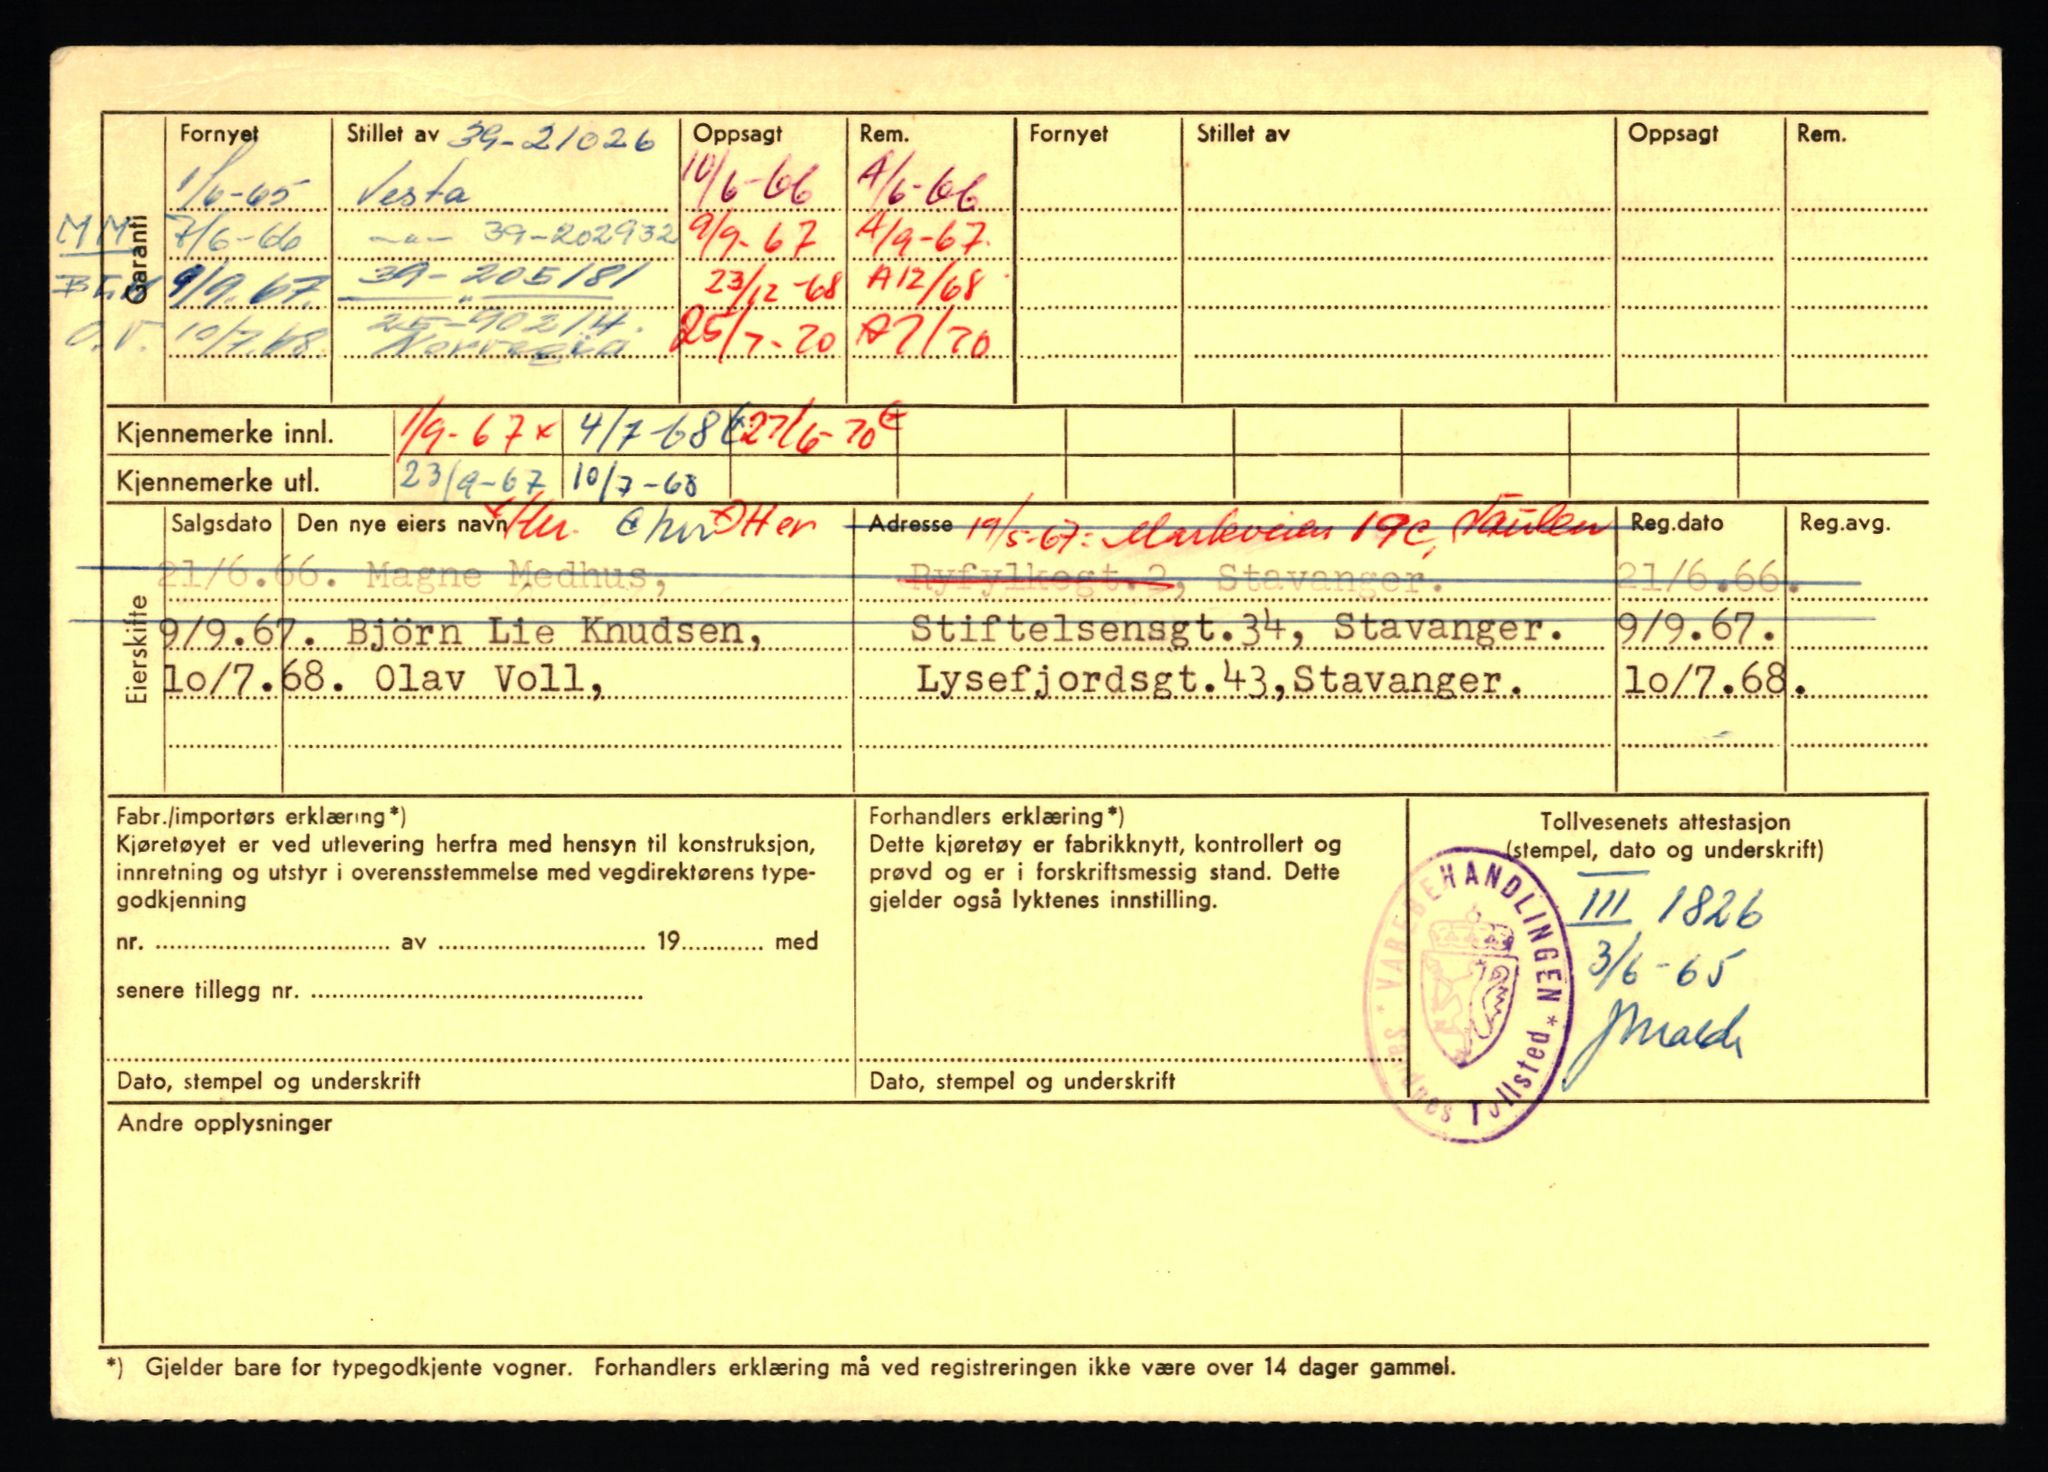 Garanti
Fornyet Stillet av 39-21026 Oppsagt Rem. Fornyet Stillet av Oppsagt Rem.
1/6-65 Vesta 10/6-66 A/6-66
MM 7/6-66 -"- 39-202932 9/9-67 A/9-67.
9/9.67. 39-205181 23/12-68 A12/68
O.V. 10/7.68. 25-90214. Norvegia 25/7-70 A7/70
Kjennemerke innl. 1/9-67 x 4/7-68 27/6-70
Kjennemerke utl. 23/9-67 10/7-68
Eierskifte
Salgsdato Den nye eiers navn Adresse 19/5-67: Markveien 19c, Reg.dato Reg.avg.
21/6.66. Magne Medhus, Ryfylkegt.2, Stavanger. 21/6.66.
9/9.67. Björn Lie Knudsen, Stiftelsensgt.34, Stavanger. 9/9.67.
10/7.68. Olav Voll, Lysefjordsgt.43,Stavanger. 10/7.68.
Fabr./importørs erklæring*)
Kjøretøyet er ved utlevering herfra med hensyn til konstruksjon,
innretning og utstyr i overensstemmelse med vegdirektørens type-
godkjenning
nr. ........ av ........ 19........ med
senere tillegg nr. ........
Dato, stempel og underskrift
Forhandlers erklæring*)
Dette kjøretøy er fabrikknytt, kontrollert og
prøvd og er i forskriftsmessig stand. Dette
gjelder også lyktenes innstilling.
Dato, stempel og underskrift
Tollvesenets attestasjon
(stempel, dato og underskrift)
III 1826
3/6-65
* VAREBEHANDLINGEN *
Sandnes Tollsted
Andre opplysninger
*) Gjelder bare for typegodkjente vogner. Forhandlers erklæring må ved registreringen ikke være over 14 dager gammel.